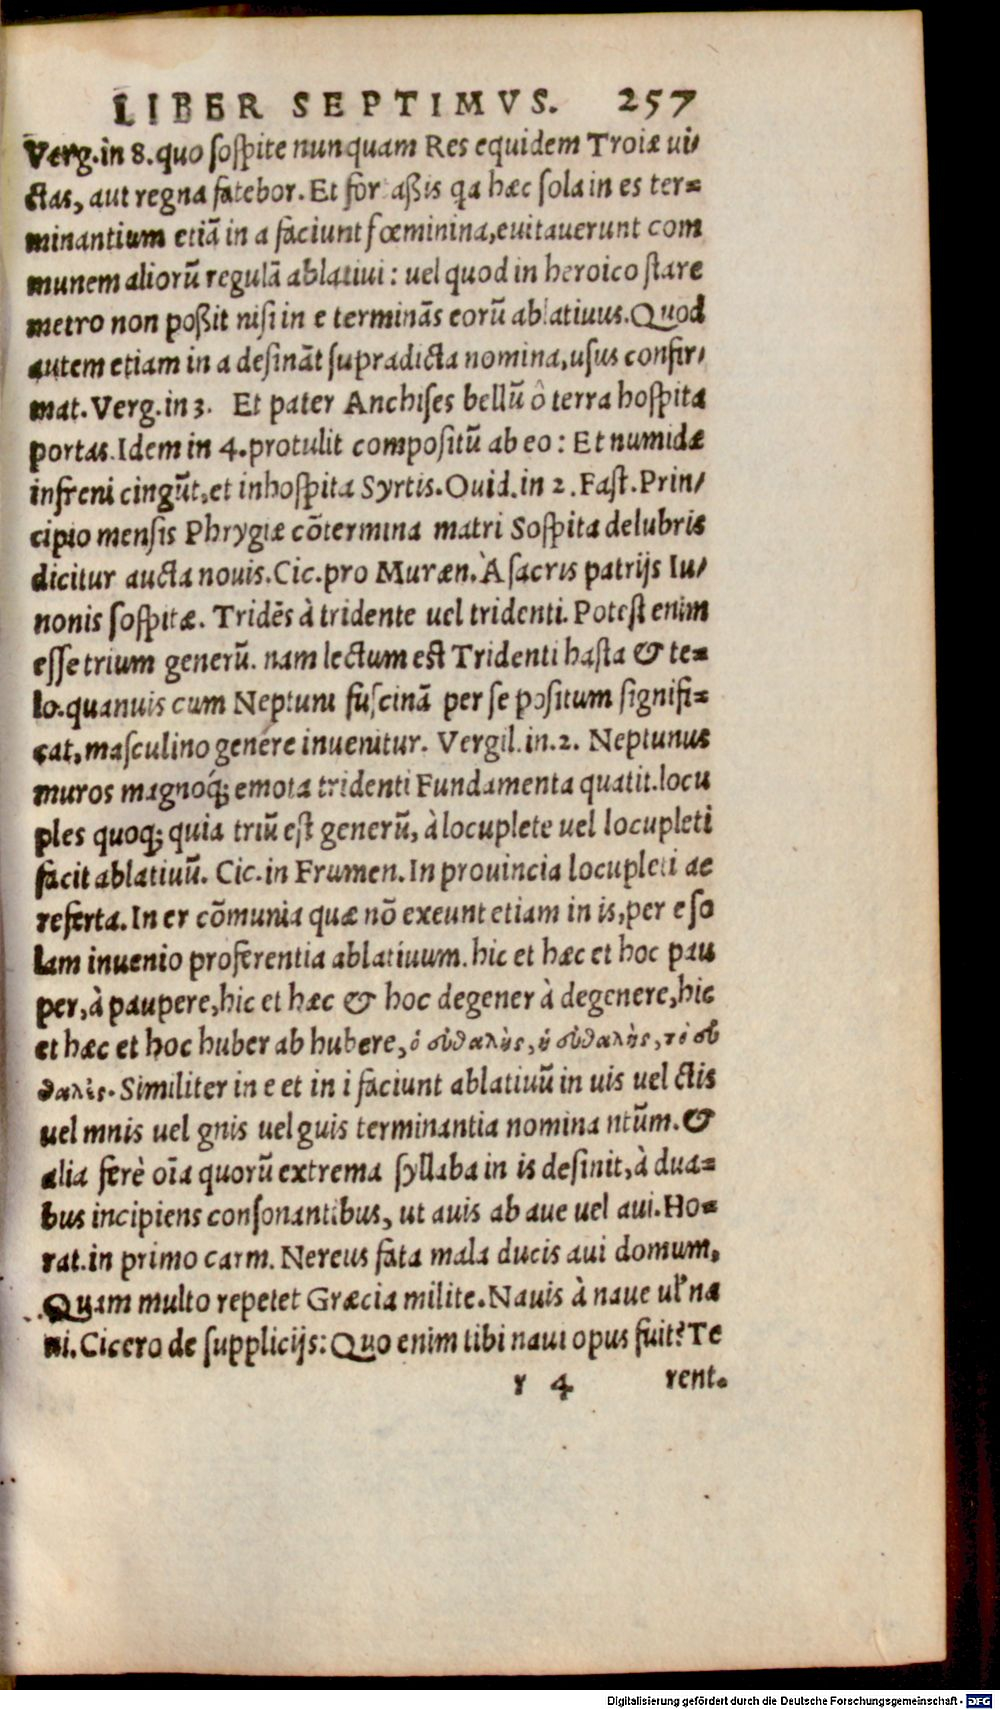 LIBER SEPTIMVS. 257
Verg.in 8. quo sospite nunquam Res equidem Troiæ ui/
ctas, aut regna fatebor. Et for aßis qa hæc sola in es ter=
minantium etiā in a faciunt fœminina, euitauerunt com
munem aliorū regulā ablatiui: uel quod in heroico stare
metro non poßit nisi in e termināns eorū ablatiuus. Quod
autem etiam in a desināt supradicta nomina, usus confir/
mat. Verg. in 3. Et pater Anchises bellū ô terra hospita
portas. Idem in 4. protulit compositū ab eo: Et numidæ
infreni cingūt, et inhospita Syrtis. Ouid. in 2. Fast. Prin/
cipio mensis Phrygiæ cōtermina matri Sospita delubris
dicitur aucta nouis. Cic. pro Muræn. À sacris patrijs Iu/
nonis sospitæ. Tridēs à tridente uel tridenti. Potest enim
esse trium generū. nam lectum est Tridenti hasta & te=
lo. quanuis cum Neptuni fuscinā per se positum signifi=
cat, masculino genere inuenitur. Vergil. in. 2. Neptunus
muros magnoq́; emota tridenti Fundamenta quatit. locu
ples quoq; quia triū est generū, à locuplete uel locupleti
facit ablatiuū. Cic. in Frumen. In prouincia locupleti ac
referta. In er cōmunia quæ nō exeunt etiam in is, per e so
lam inuenio proferentia ablatiuum. hic et hæc et hoc pau
per, à paupere, hic et hæc & hoc degener à degenere, hic
et hæc et hoc huber ab hubere, ὁ οὐθαλὴς, ἡ οὐθαλὴς, τὸ οὐ
θαλὲς. Similiter in e et in i faciunt ablatiuū in uis uel ctis
uel mnis uel gnis uel guis terminantia nomina ntūm. &
alia ferè oīa quorū extrema syllaba in is desinit, à dua=
bus incipiens consonantibus, ut auis ab aue uel aui. Ho=
rat. in primo carm. Nereus fata mala ducis aui domum,
Quam multo repetet Græcia milite. Nauis à naue uł na
ui. Cicero de supplicijs: Quo enim tibi naui opus fuit? Te
r 4 rent.
Digitalisierung gefördert durch die Deutsche Forschungsgemeinschaft - DFG